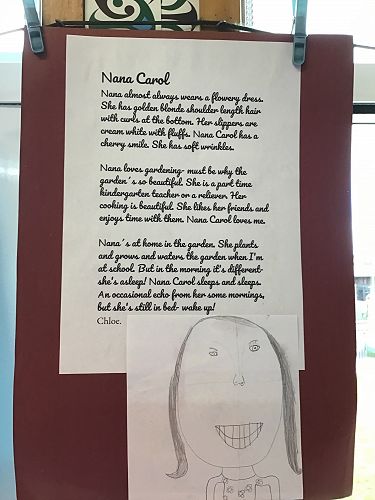 Nana Carol
Nana almost always wears a flowery dress.
She has golden blonde shoulder-length hair
with curls at the bottom. Her slippers are
cream white with fluffs. Nana Carol has a
cherry smile. She has soft wrinkles.
Nana loves gardening- must be why the
garden´s so beautiful. She is a part time
kindergarten teacher or a reliever. Her
cooking is beautiful. She likes her friends and
enjoys time with them. Nana Carol loves me.
Nana´s at home in the garden. She plants
and grows and waters the garden when I'm
at school. But in the morning it's different-
she's asleep! Nana Carol sleeps and sleeps.
An occasional echo from her some mornings,
but she's still in bed- wake up!
Chloe.